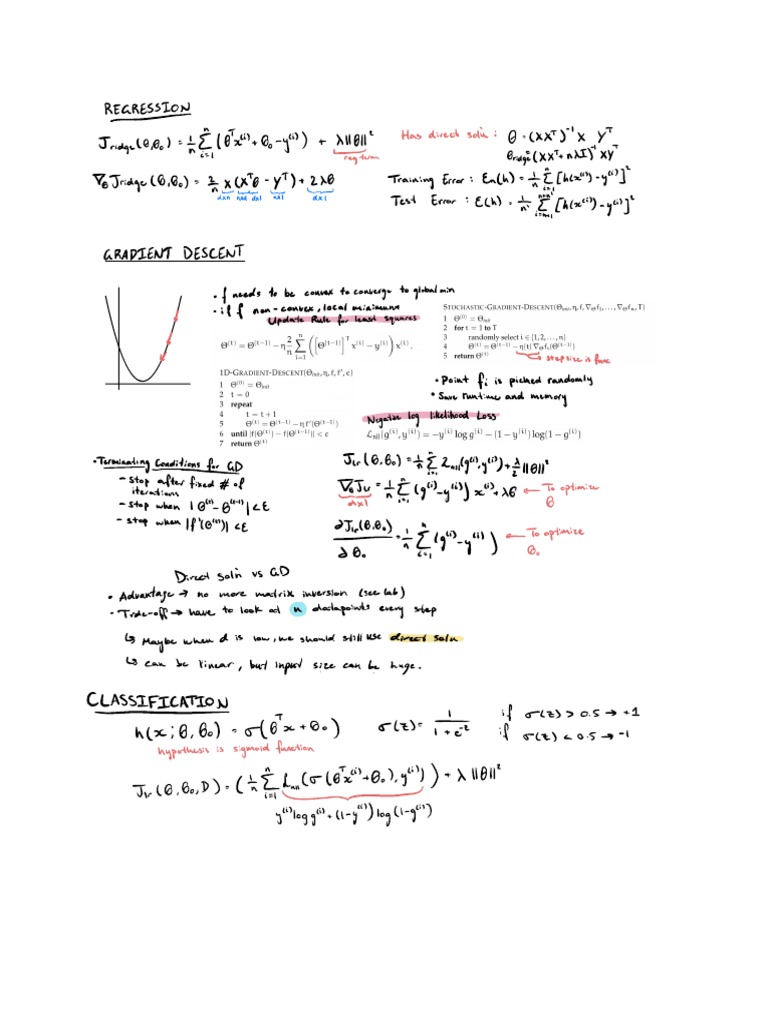 REGRESSION
J_ridge(θ,θ₀) = 1/n Σ_{i=1}^{n} (θᵀx⁽ⁱ⁾ + θ₀ - y⁽ⁱ⁾) + λ||θ||²
reg term
Has direct soln : θ = (XXᵀ)⁻¹ X Yᵀ
θ_ridge = (XXᵀ + nλI)⁻¹ XYᵀ
∇_θ J_ridge(θ,θ₀) = 2/n X(Xᵀθ - Yᵀ) + 2λθ
dxn nxd dx1 nx1 dx1
Training Error : En(h) = 1/n Σ_{i=1}^{n} [h(x⁽ⁱ⁾) - y⁽ⁱ⁾]²
Test Error : E(h) = 1/n' Σ_{i=n+1}^{n+n'} [h(x⁽ⁱ⁾) - y⁽ⁱ⁾]²
GRADIENT DESCENT
• f needs to be convex to converge to global min
• if f non-convex, local minimum
Update Rule for least squares
Θ⁽ᵗ⁾ = Θ⁽ᵗ⁻¹⁾ − η 2/n Σ_{i=1}^{n} ([Θ⁽ᵗ⁻¹⁾]ᵀ x⁽ⁱ⁾ − y⁽ⁱ⁾) x⁽ⁱ⁾ .
1D-GRADIENT-DESCENT(Θ_init, η, f, f′, ϵ)
1 Θ⁽⁰⁾ = Θ_init
2 t = 0
3 repeat
4 t = t + 1
5 Θ⁽ᵗ⁾ = Θ⁽ᵗ⁻¹⁾ − η f′(Θ⁽ᵗ⁻¹⁾)
6 until |f(Θ⁽ᵗ⁾) − f(Θ⁽ᵗ⁻¹⁾)| < ϵ
7 return Θ⁽ᵗ⁾
STOCHASTIC-GRADIENT-DESCENT(Θ_init, η, f, ∇_Θ f₁, ..., ∇_Θ fₙ, T)
1 Θ⁽⁰⁾ = Θ_init
2 for t = 1 to T
3 randomly select i ∈ {1, 2, ..., n}
4 Θ⁽ᵗ⁾ = Θ⁽ᵗ⁻¹⁾ − η(t) ∇_Θ fᵢ(Θ⁽ᵗ⁻¹⁾)
5 return Θ⁽ᵗ⁾
step size is func
• Point fᵢ is picked randomly
• Save runtime and memory
Negative log likelihood Loss
L_nll(g⁽ⁱ⁾, y⁽ⁱ⁾) = −y⁽ⁱ⁾ log g⁽ⁱ⁾ − (1 − y⁽ⁱ⁾) log(1 − g⁽ⁱ⁾)
• Terminating Conditions for GD
- stop after fixed # of
iterations
- stop when |Θ⁽ᵗ⁾ - Θ⁽ᵗ⁻¹⁾| < ε
- stop when |f'(Θ⁽ᵗ⁾)| < ε
J_lr(θ,θ₀) = 1/n Σ_{i=1}^{n} L_nll(g⁽ⁱ⁾, y⁽ⁱ⁾) + λ/2 ||θ||²
∇_θ J_lr = 1/n Σ_{i=1}^{n} (g⁽ⁱ⁾ - y⁽ⁱ⁾) x⁽ⁱ⁾ + λθ ← To optimize
dx1 θ
∂J_lr(θ,θ₀)/∂θ₀ = 1/n Σ_{i=1}^{n} (g⁽ⁱ⁾ - y⁽ⁱ⁾) ← To optimize
θ₀
Direct soln vs GD
• Advantage → no more matrix inversion (see lab)
• Trade-off → have to look at n datapoints every step
↳ Maybe when d is low, we should still use direct soln
↳ can be linear, but input size can be huge.
CLASSIFICATION
h(x; θ, θ₀) = σ(θᵀx + θ₀)
hypothesis is sigmoid function
σ(z) = 1/(1 + e⁻ᶻ)
if σ(z) > 0.5 → +1
if σ(z) < 0.5 → -1
J_lr(θ, θ₀, D) = (1/n Σ_{i=1}^{n} L_nll(σ(θᵀx⁽ⁱ⁾ + θ₀), y⁽ⁱ⁾)) + λ||θ||²
y⁽ⁱ⁾ log g⁽ⁱ⁾ + (1 - y⁽ⁱ⁾) log(1 - g⁽ⁱ⁾)